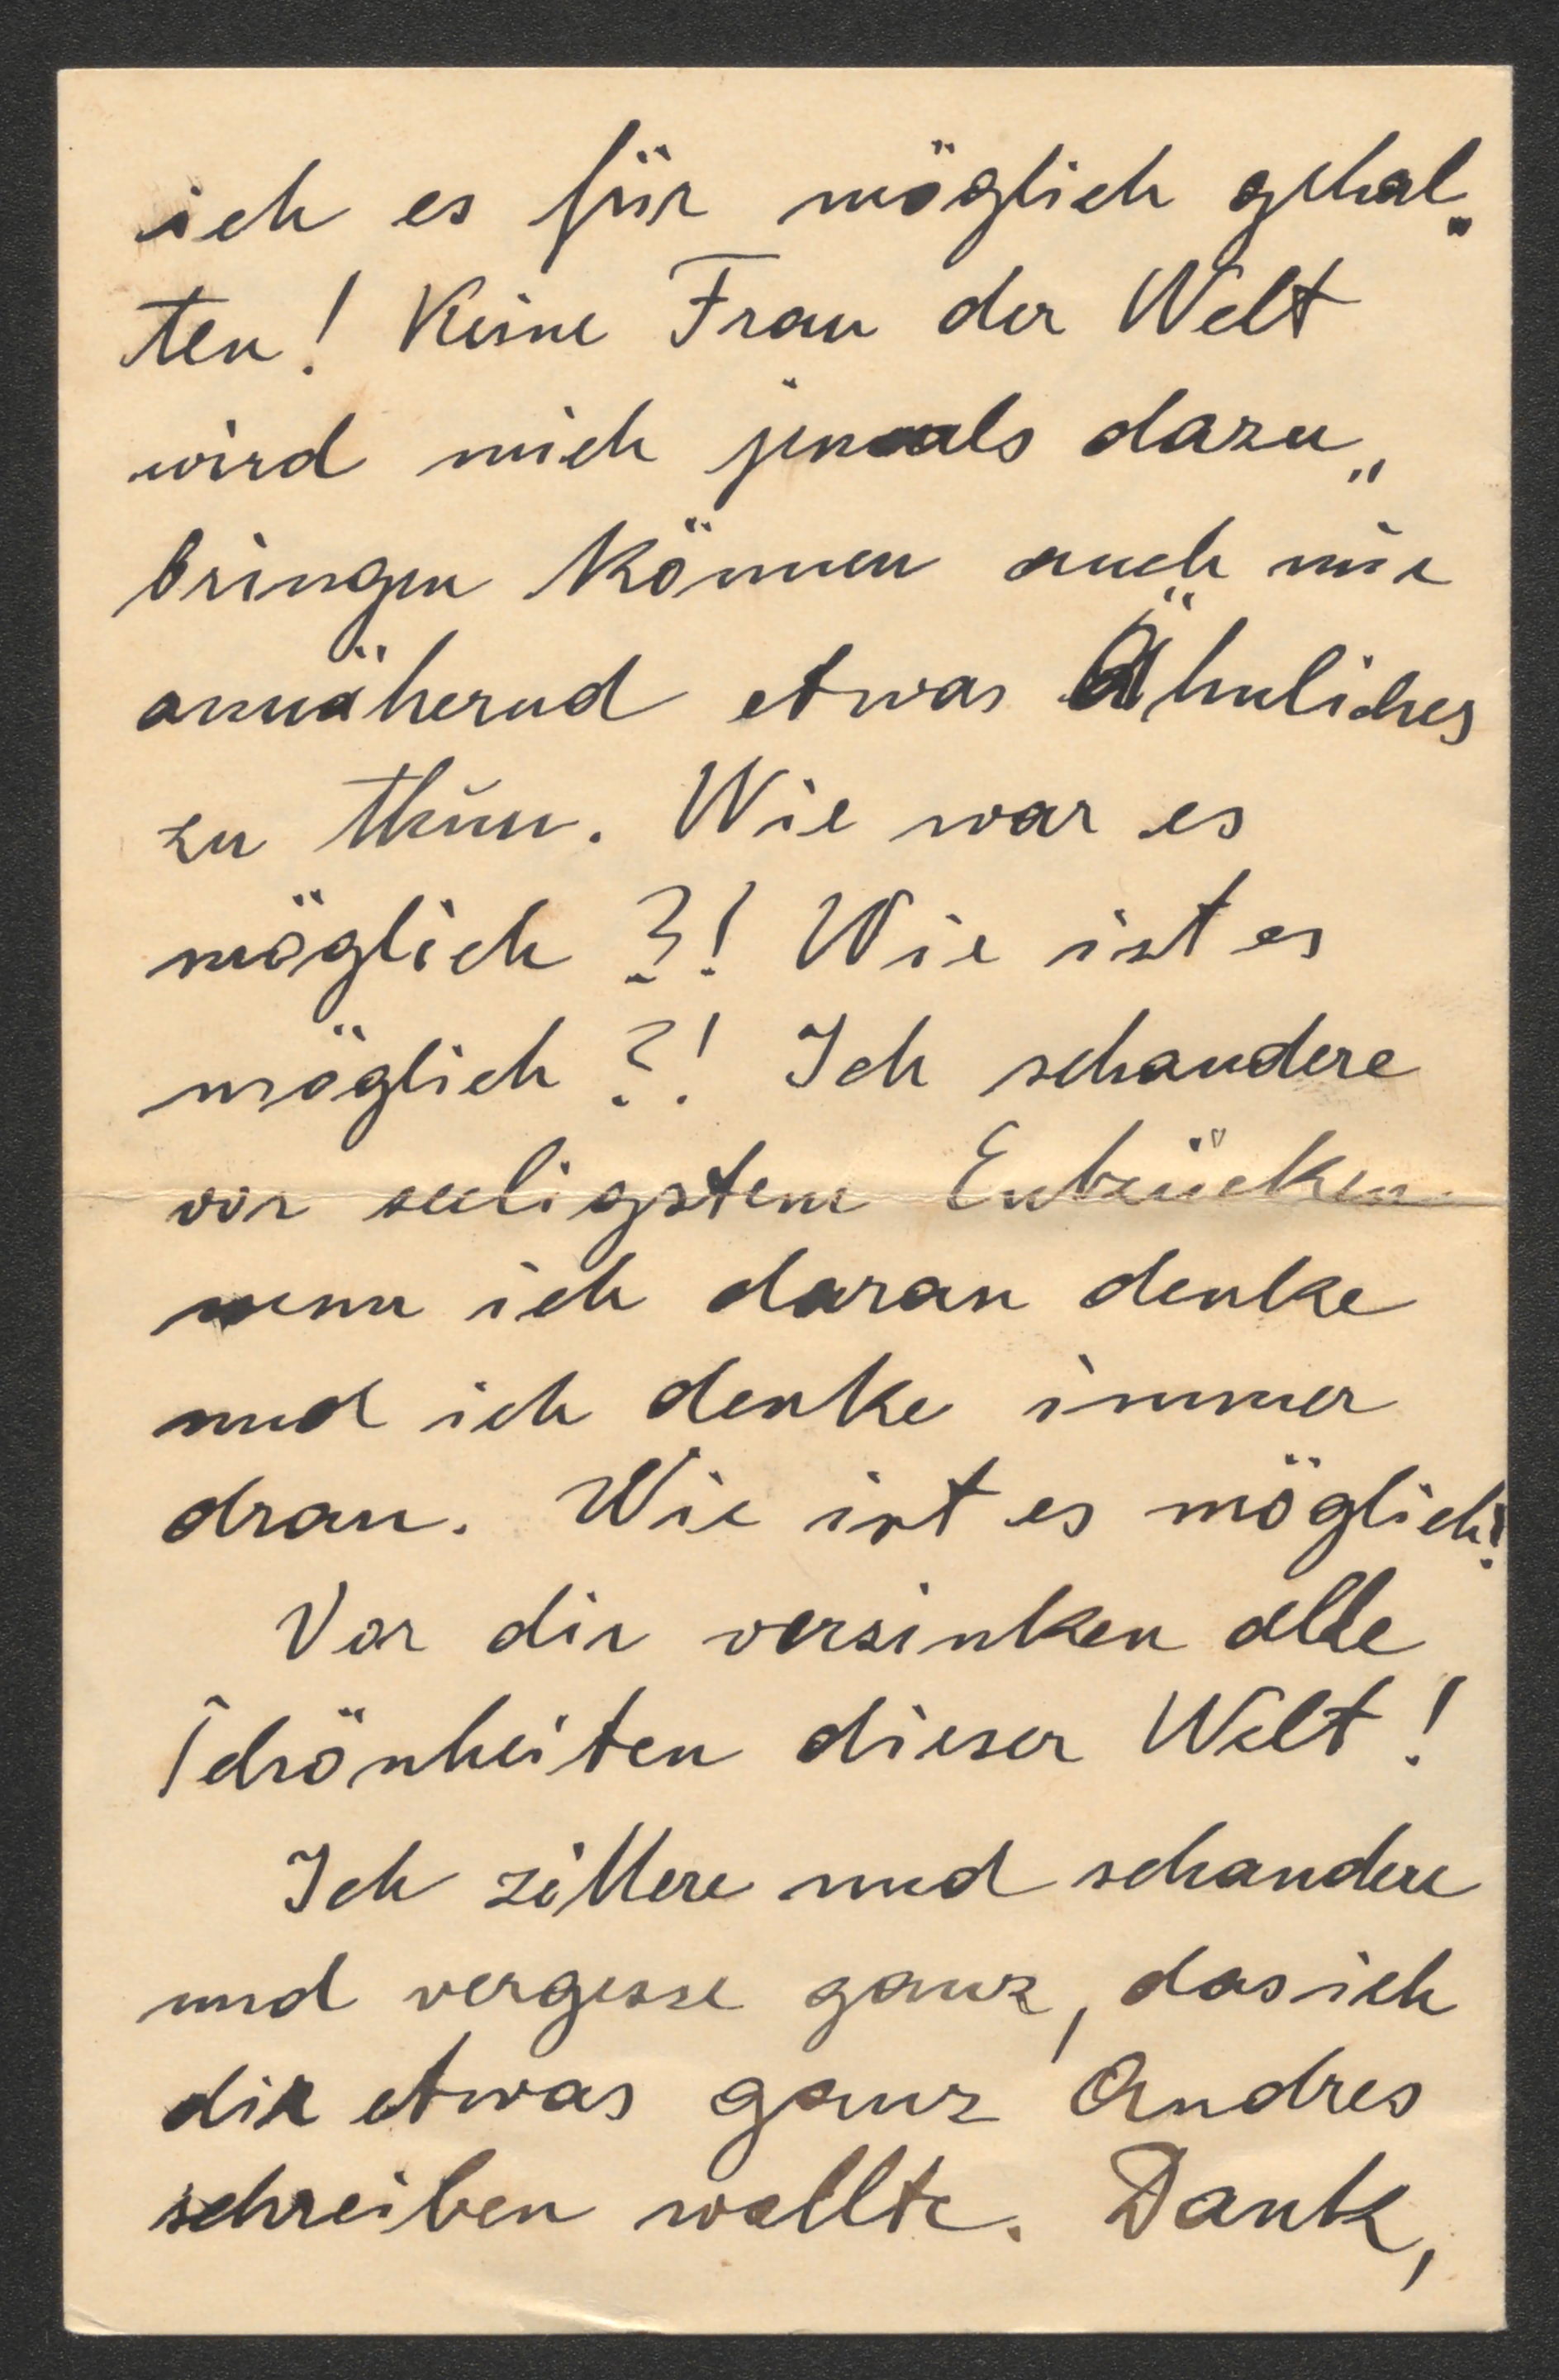 ich es für möglich gehal„
ten! Keine Frau der Welt
wird mich jemals dazu„
bringen können auch nur
annähernd etwas Ähnliches
zu thun. Wie war es
möglich?! Wie ist es
möglich?! Ich schaudere
vor seeligstem Entzücken
wenn ich daran denke
und ich denke immer
dran. Wie ist es möglich!
Vor dir versinken alle
Schönheiten dieser Welt!
Ich zittere und schaudere
und vergesse ganz, das ich
dir etwas ganz Andres
schreiben wollte. Dank,